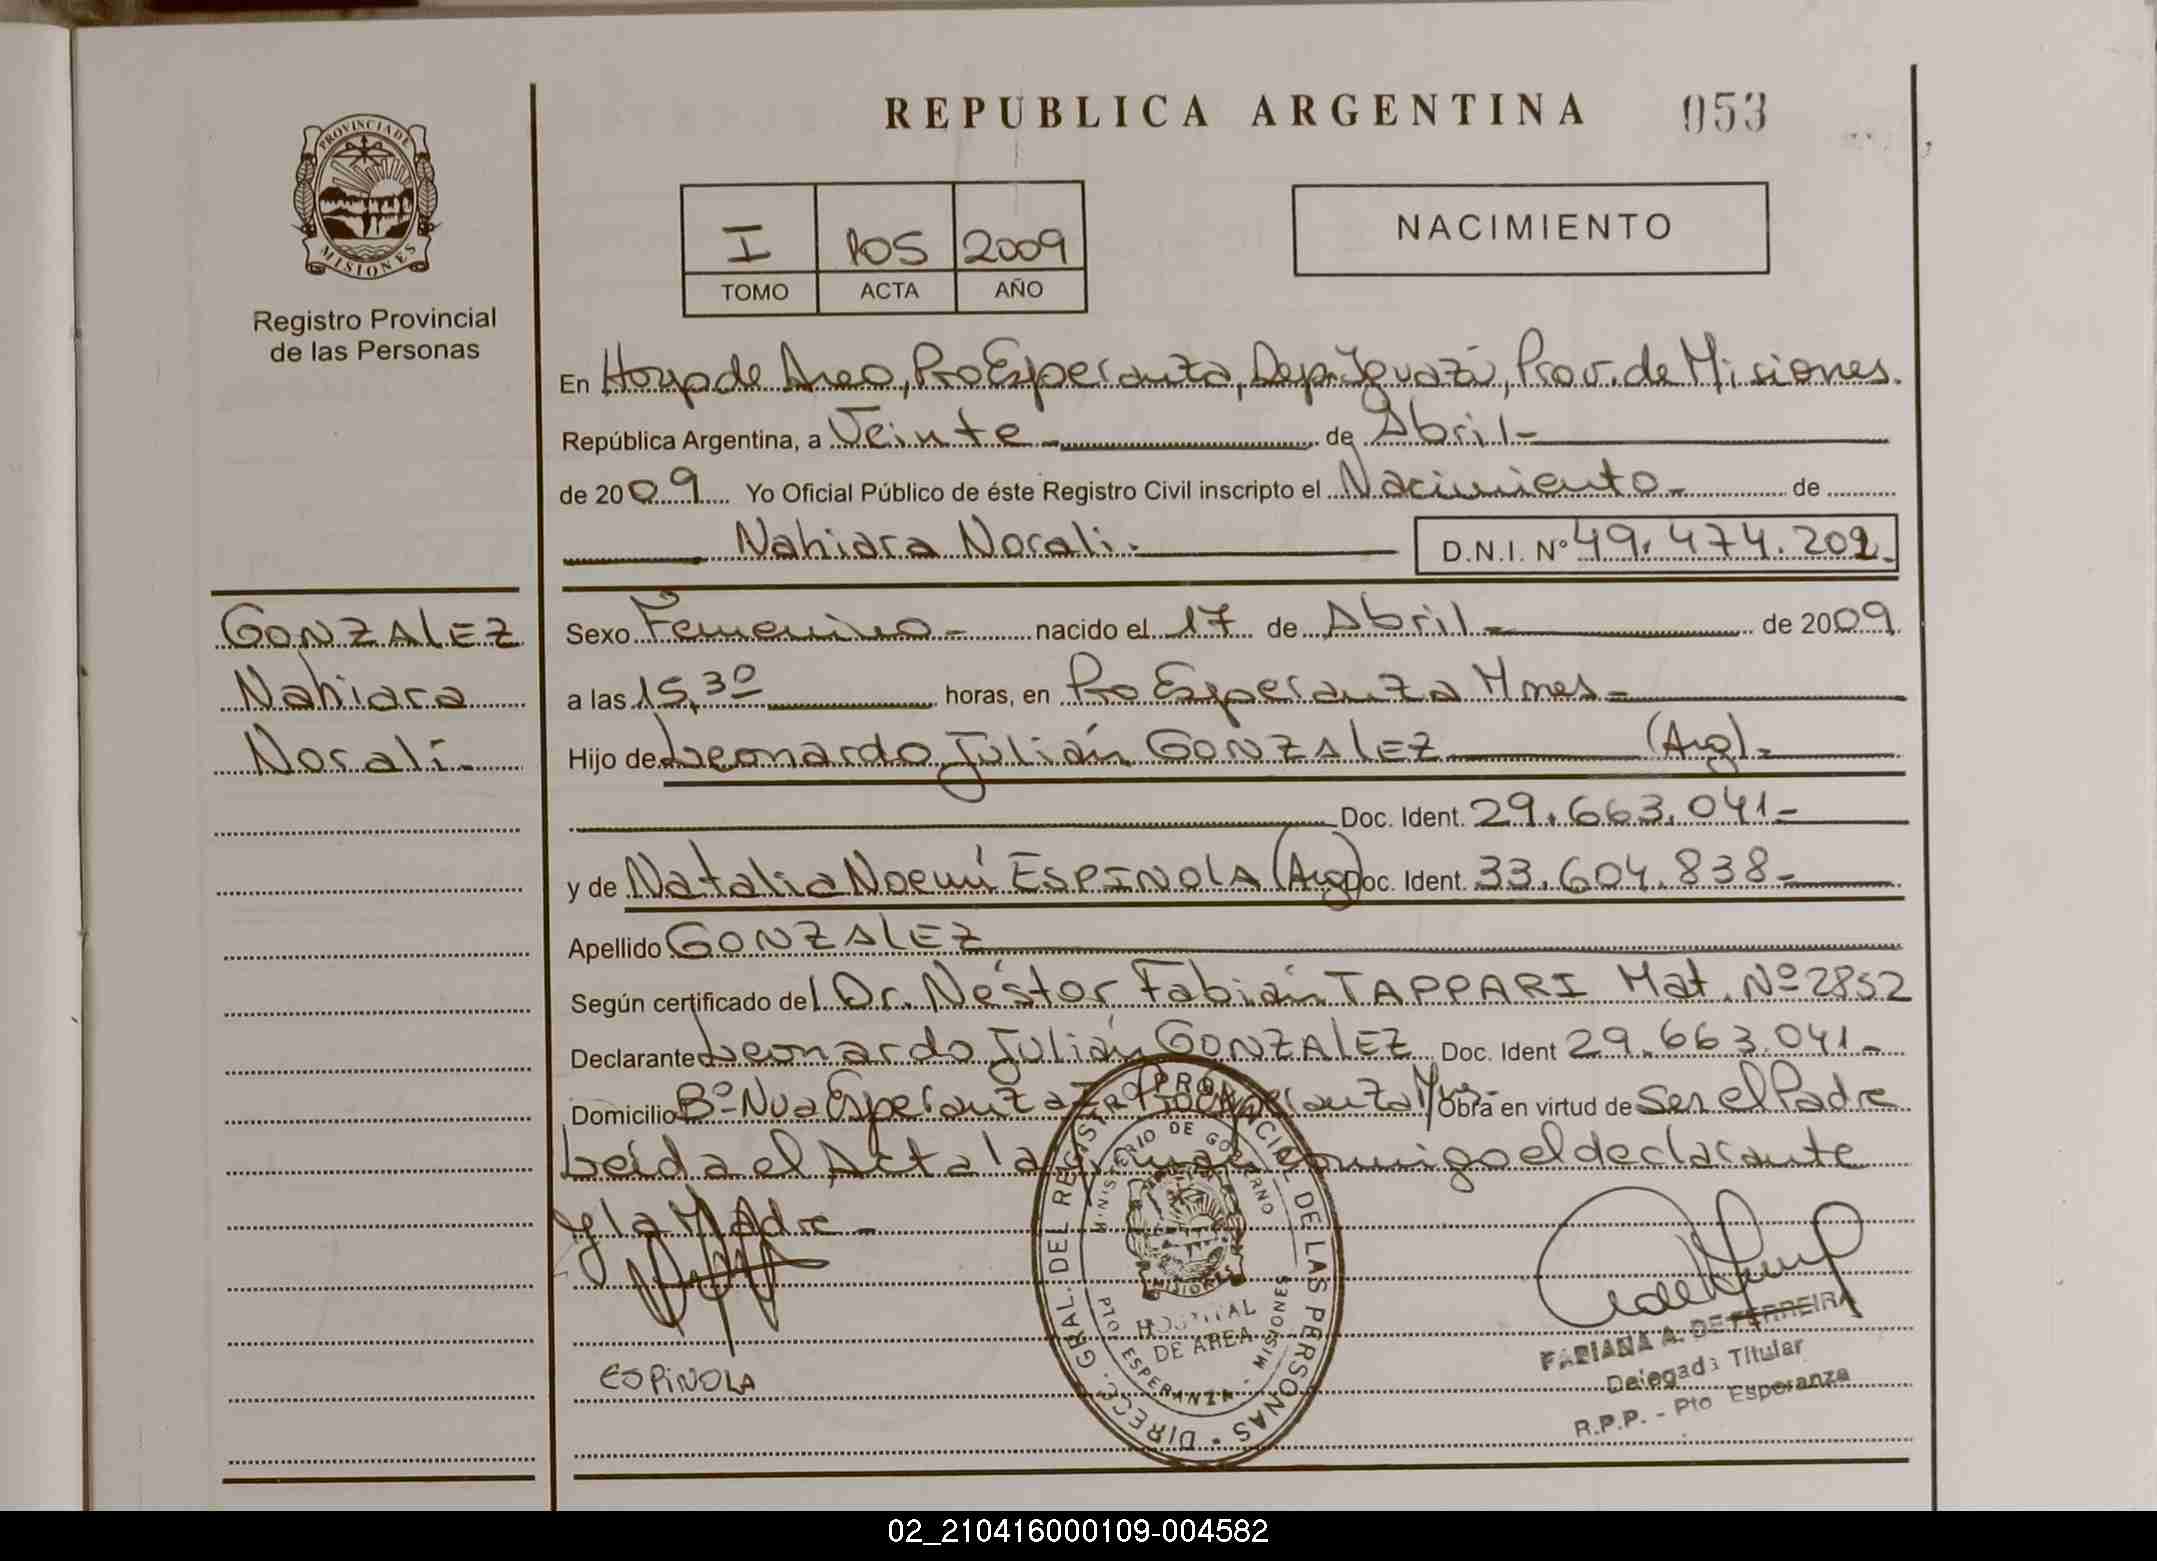 REPUBLICA ARGENTINA 053
PROVINCIA DE
MISIONES
Registro Provincial
de las Personas
I 105 2009
TOMO ACTA AÑO
NACIMIENTO
En Hosp de Area, Pto Esperanza, Dep. Iguazú, Prov. de Misiones.
República Argentina, a Veinte de Abril
de 2009 Yo Oficial Público de éste Registro Civil inscripto el Nacimiento de
Nahiara Norali. D.N.I. Nº 49.474.202
GONZALEZ
Nahiara
Norali
Sexo Femenino nacido el 17 de Abril de 2009
a las 15,30 horas, en Pto Esperanza Mnes
Hijo de Leonardo Julián GONZALEZ (Arg)
Doc. Ident. 29.663.041
y de Natalia Noemí ESPINOLA (Arg) Doc. Ident. 33.604.838
Apellido GONZALEZ
Según certificado del Dr. Néstor Fabián TAPPARI Mat. Nº 2852
Declarante Leonardo Julián GONZALEZ Doc. Ident 29.663.041
Domicilio Bº Nva Esperanza Pto Esperanza Mns Obra en virtud de Ser el Padre
Leída el Acta la conmigo el declarante
y la Madre
ESPINOLA
DIRECC. GRAL. DEL REGISTRO PROVINCIAL DE LAS PERSONAS
MINISTERIO DE GOBIERNO
MISIONES
HOSPITAL
DE AREA
PTO. ESPERANZA - MISIONES
FABIANA A. DE FERREIRA
Delegada Titular
R.P.P. - Pto Esperanza
02_210416000109-004582